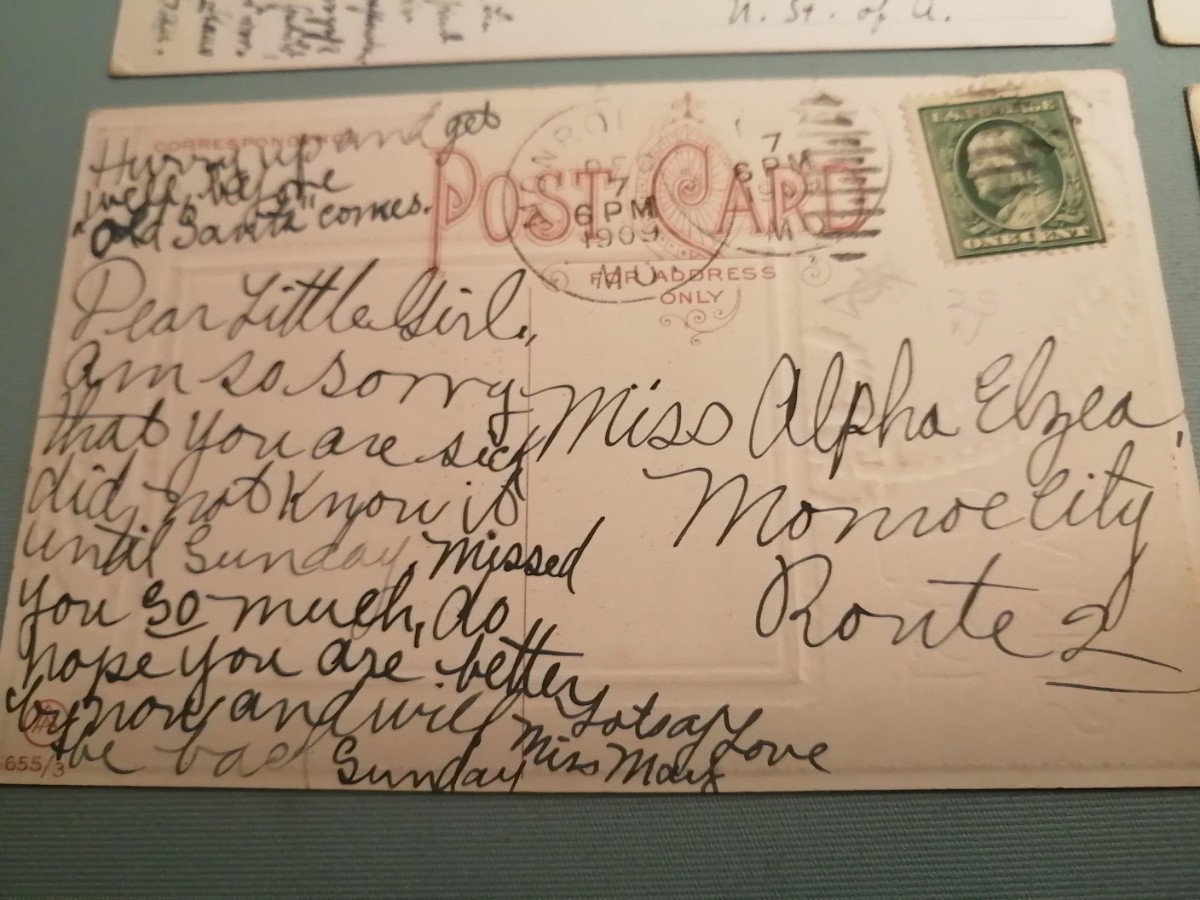 U. St. of A.
CORRESPONDENCE
POST CARD
FOR ADDRESS
ONLY
7
6 PM
1909
MO.
7
6 PM
MO
ONE CENT
Hurry up and get
well, before
"old Santa" comes.
Dear Little Girl,
Am so sorry
that you are sick
did not know it
until Sunday, missed
you so much, do
hope you are better
by now and will
be back Sunday
Lots of Love
Miss May
Miss Alpha Elzea,
Monroe City
Route 2
655/3